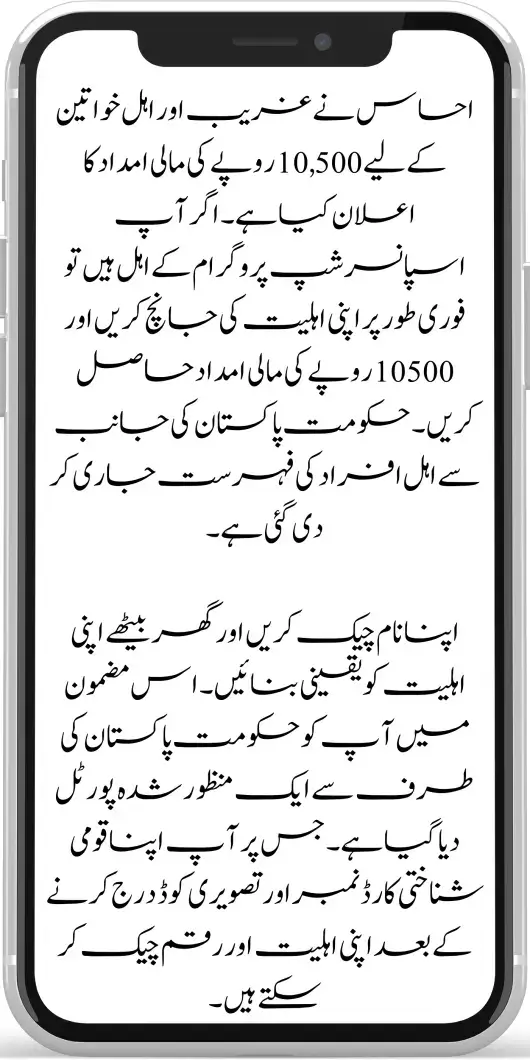 احساس نے غریب اور اہل خواتین
کے لیے 10,500 روپے کی مالی امداد کا
اعلان کیا ہے۔ اگر آپ
اسپانسرشپ پروگرام کے اہل ہیں تو
فوری طور پر اپنی اہلیت کی جانچ کریں اور
10500 روپے کی مالی امداد حاصل
کریں۔ حکومت پاکستان کی جانب
سے اہل افراد کی فہرست جاری کر
دی گئی ہے۔
اپنا نام چیک کریں اور گھر بیٹھے اپنی
اہلیت کو یقینی بنائیں۔ اس مضمون
میں آپ کو حکومت پاکستان کی
طرف سے ایک منظور شدہ پورٹل
دیا گیا ہے۔ جس پر آپ اپنا قومی
شناختی کارڈ نمبر اور تصویری کوڈ درج کرنے
کے بعد اپنی اہلیت اور رقم چیک کر
سکتے ہیں۔